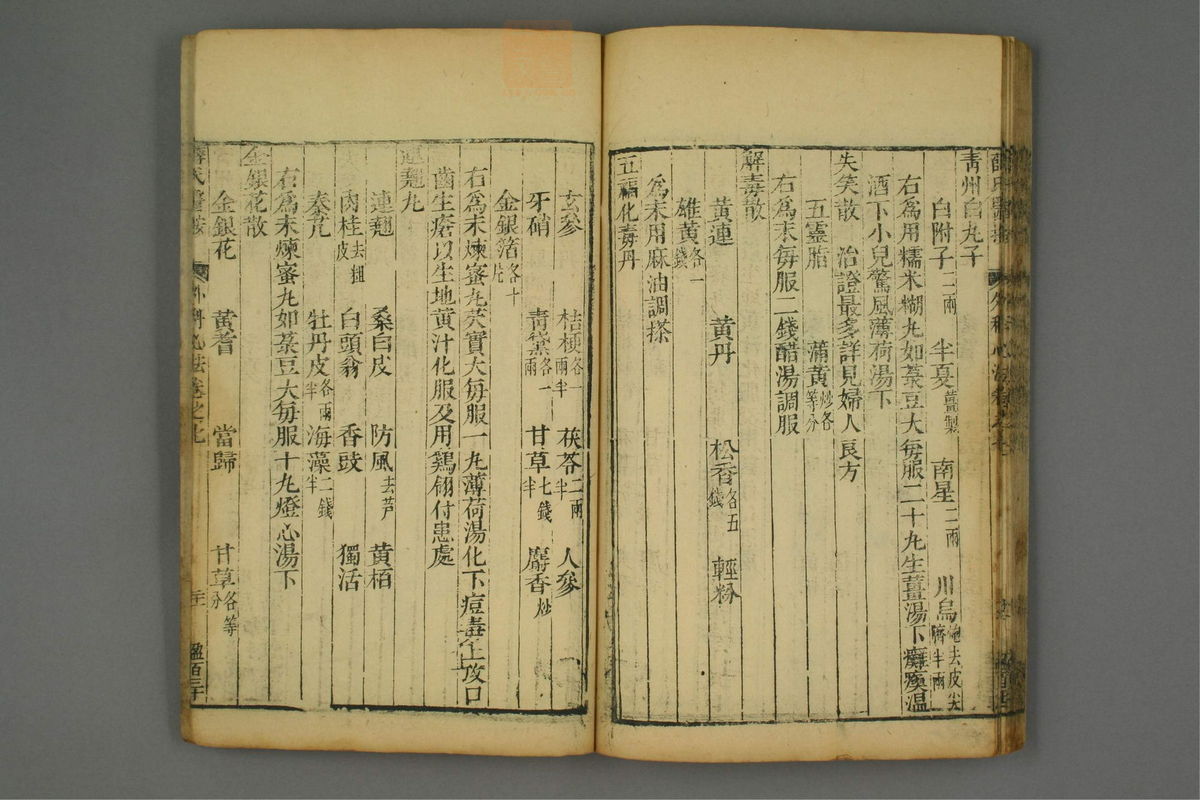 青州白丸子
白附子二兩 半夏薑製 南星二兩 川烏去皮尖臍半兩
右為用糯米糊丸如菉豆大每服二十丸生薑湯下癱瘓温
酒下小兒驚風薄荷湯下
失笑散 治證最多詳見婦人良方
五靈脂 蒲黃炒各等分
右為末每服二錢醋湯調服
解毒散
黃連 黃丹 松香各五錢 輕粉
雄黃各一錢
為末用麻油調搽
五福化毒丹
玄參 桔梗各一兩半 茯苓二兩半 人參
牙硝 青黛各一兩 甘草七錢半 麝香炒
金銀箔各十片
右為末煉蜜丸芡實大每服一丸薄荷湯化下痘毒上攻口
齒生瘡以生地黃汁化服及用鷄翎付患處
連翹丸
連翹 桑白皮 防風去芦 黃栢
肉桂去粗皮 白頭翁 香豉 獨活
秦艽 牡丹皮各兩半 海藻二錢半
右為末煉蜜丸如菉豆大每服十丸燈心湯下
金銀花散
金銀花 黃耆 當歸 甘草各等分
外科心法卷之七